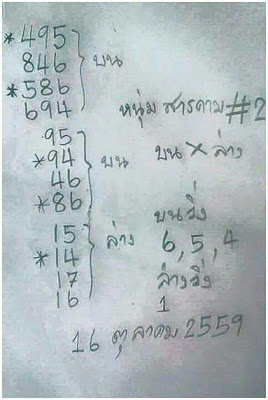 *495
846
*586
694
บน
หนุ่ม สารคาม #2
95
*94
46
*86
บน
บน X ล่าง
15
*14
17
16
ล่าง
บนวิ่ง
6, 5, 4
ล่างวิ่ง
1
16 ตุลาคม 2559